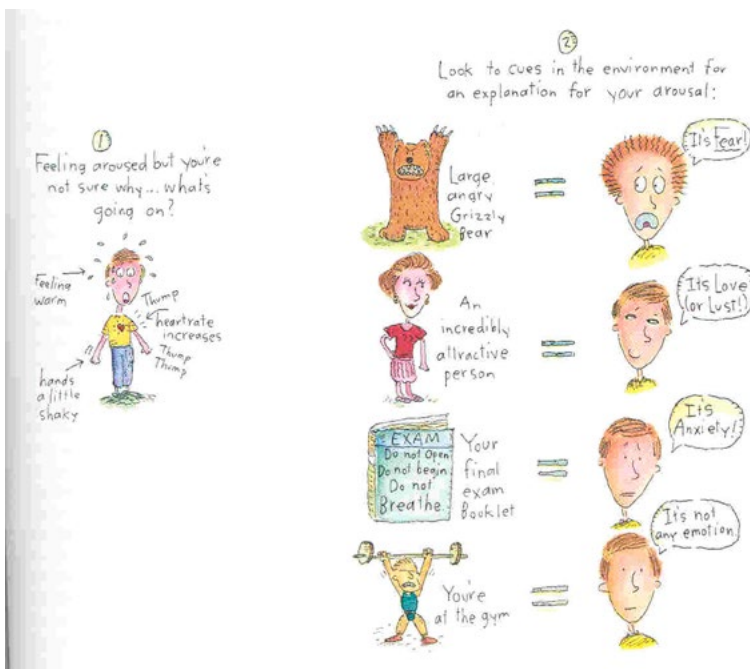 1
Feeling aroused but you're
not sure why... what's
going on?
Feeling
warm
Thump
heartrate
increases
Thump
Thump
hands
a little
shaky
2
Look to cues in the environment for
an explanation for your arousal:
Large,
angry
Grizzly
Bear
=
It's Fear!
An
incredibly
attractive
person
=
It's Love
(or Lust!)
EXAM
Do not Open
Do not begin
Do not
Breathe
Your
final
exam
Booklet
=
It's
Anxiety!
You're
at the gym
=
It's not
any emotion